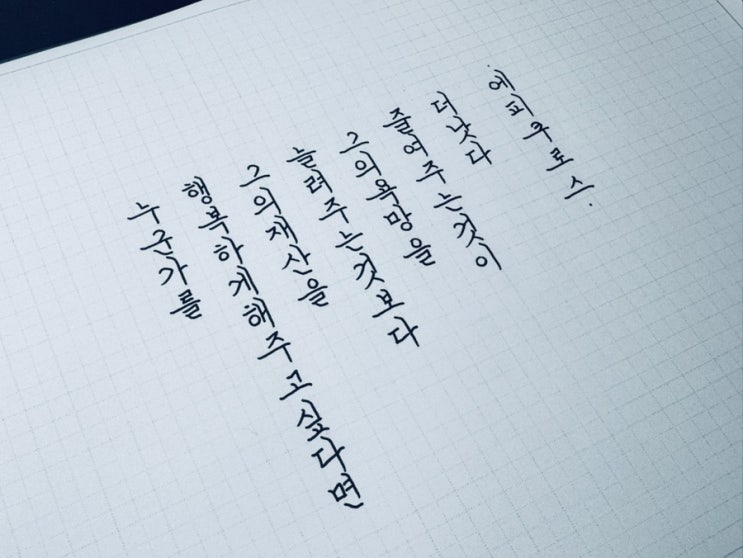 누군가를
행복하게해주고싶다면
그의재산을
늘려주는것보다
그의욕망을
줄여주는것이
더낫다
.에피쿠로스.